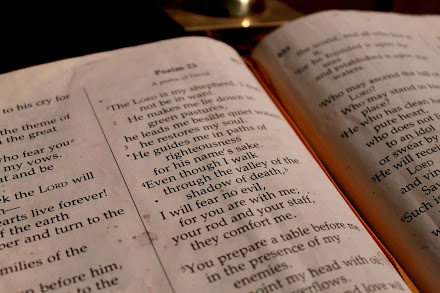 to his cry for
the theme of
the great
who fear you
my vows.
and be
k the LORD will
arts live forever!
of the earth
ber and turn to the
milies of the
n before him,
to the
Psalm 23
A psalm of David.
¹The LORD is my shepherd, I
not be in want.
² He makes me lie down in
green pastures,
he leads me beside quiet waters,
³ he restores my soul.
He guides me in paths of
righteousness
for his name's sake.
⁴Even though I walk
through the valley of the
shadow of death,
I will fear no evil,
for you are with me;
your rod and your staff,
they comfort me.
⁵You prepare a table before me
in the presence of my
enemies.
oint my head with oil;
overflows.
and love will
the world, and all who live
it;
for he founded it upon the
seas
and established it upon the
waters.
Who may ascend the hill of
LORD?
Who may stand in his
place?
He who has clean
pure heart,
who does not
to an idol
or swear by
He will receive
LORD
and vin
Sav
Such is